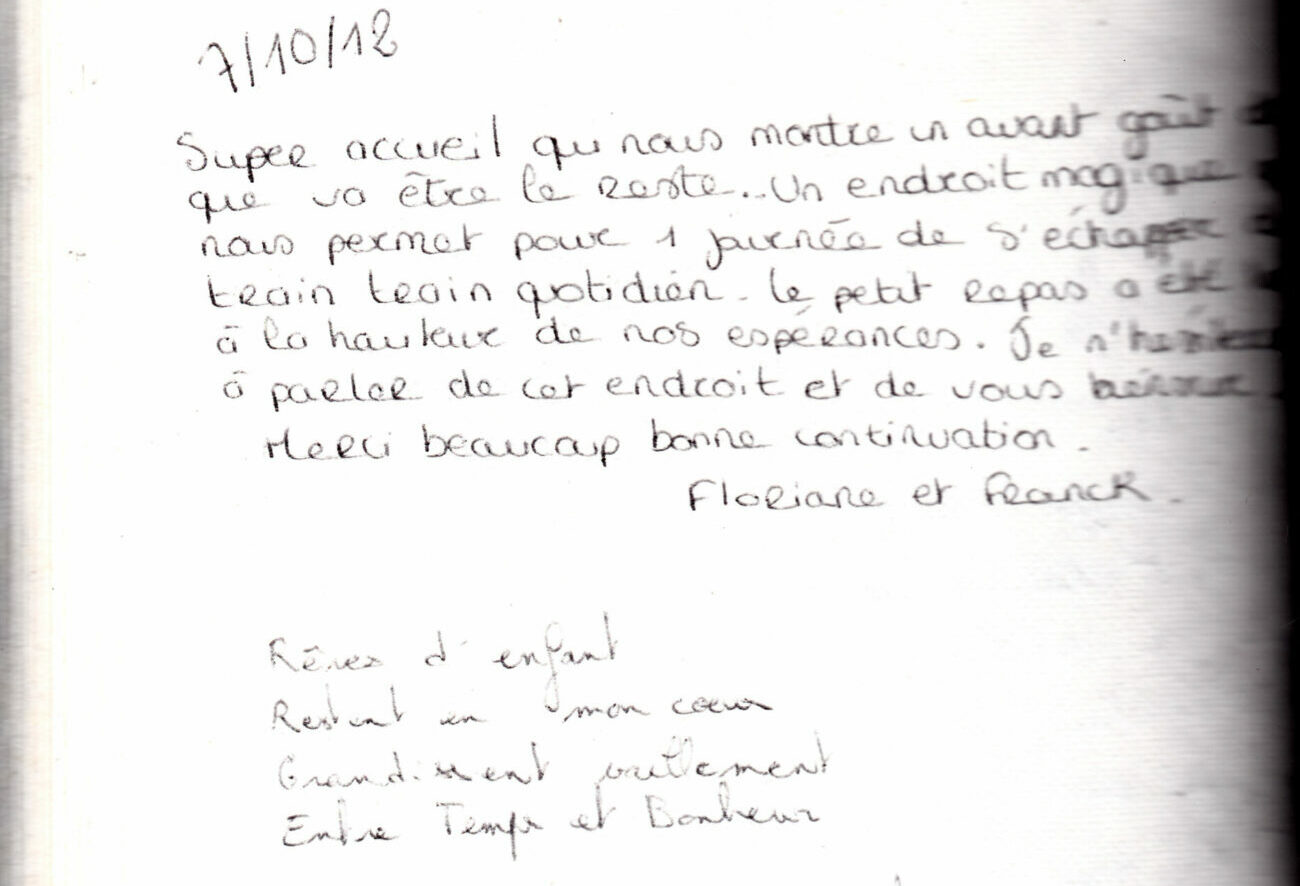 7/10/12
Super accueil qui nous montre un avant goût
que va être le reste... Un endroit magique
nous permet pour 1 journée de s'échapper
train train quotidien. Le petit repas a été
à la hauteur de nos espérances. Je n'hésite
à parler de cet endroit et de vous
Merci beaucoup bonne continuation.
Floriane et Franck.
Rêves d'enfant
Restent en mon coeur
Grandissent
Entre Temps et Bonheur